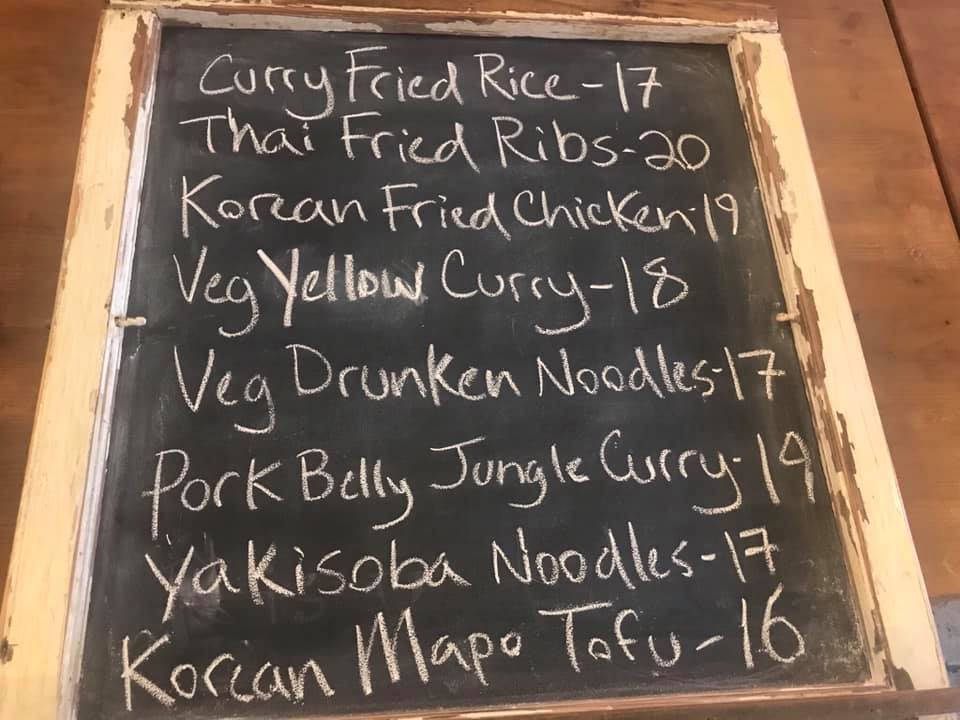 Curry Fried Rice - 17
Thai Fried Ribs - 20
Korean Fried Chicken - 19
Veg Yellow Curry - 18
Veg Drunken Noodles - 17
Pork Belly Jungle Curry - 19
Yakisoba Noodles - 17
Korean Mapo Tofu - 16